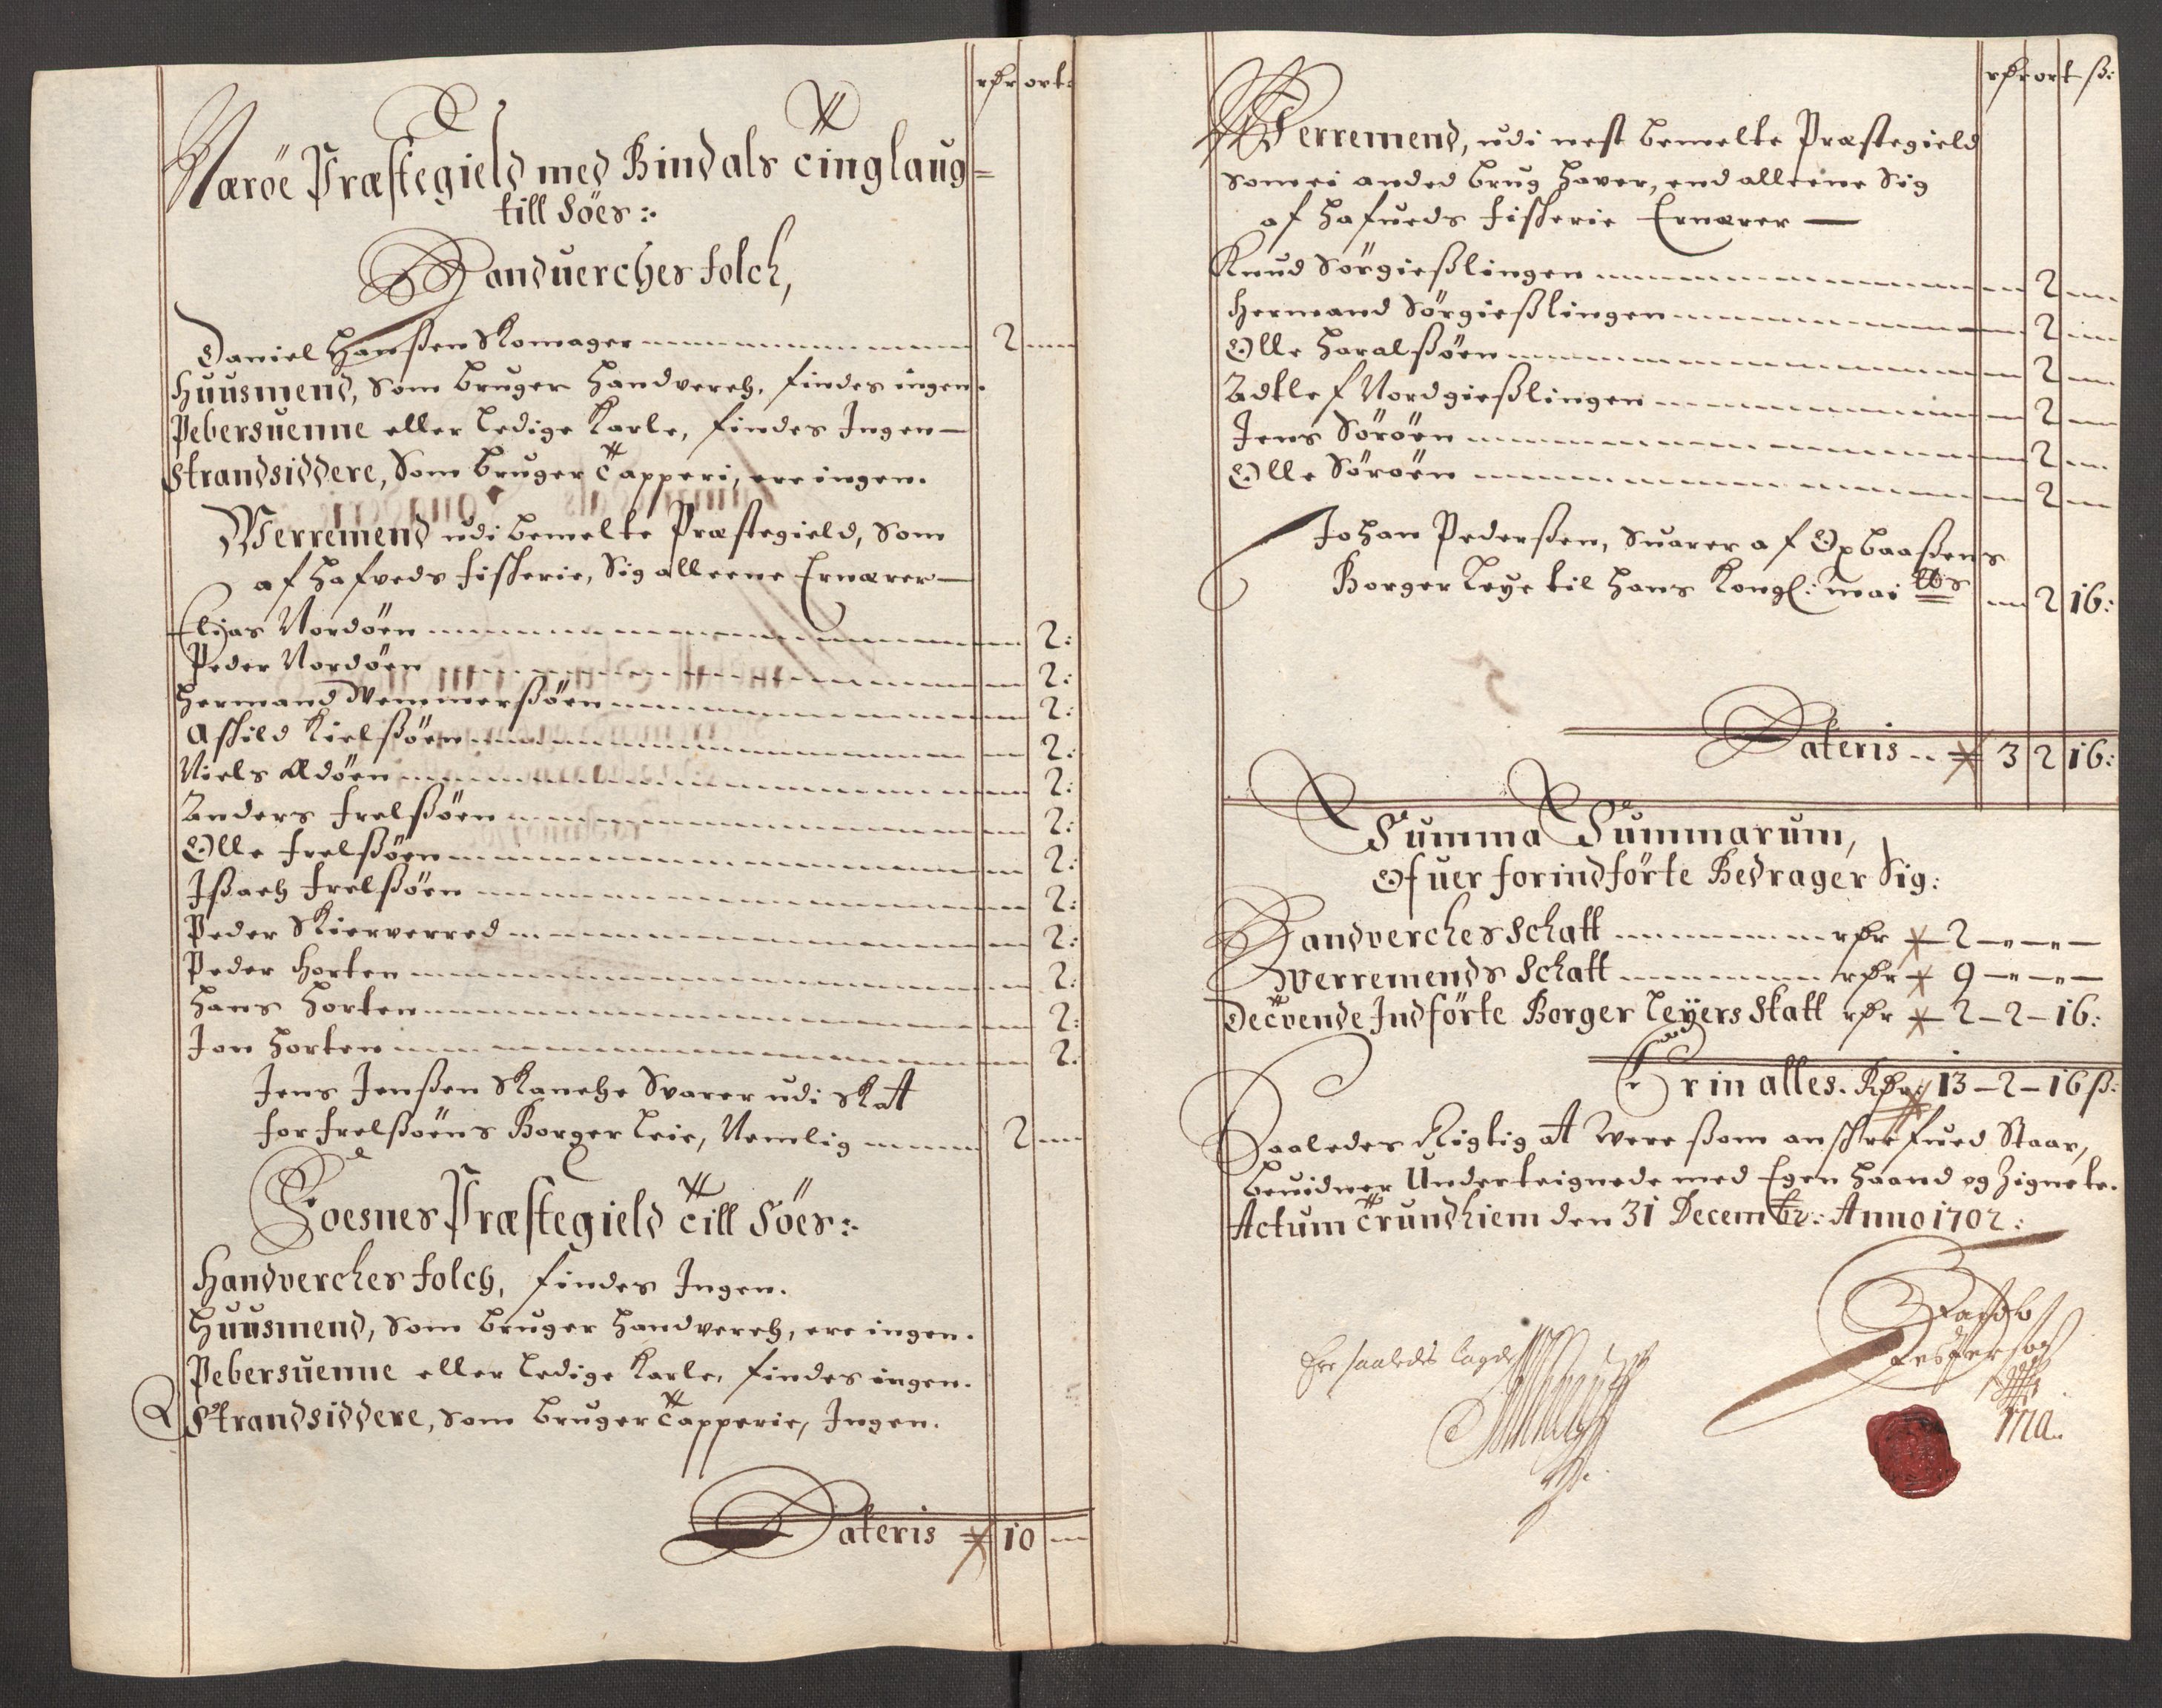 rdr ort:
Næröe Præstegield med Bindals Tinglaug
till Söes:
Handuerches folch,
Daniel Hanßen Skomager 2
Huusmend, Som bruger Handverch, findes ingen.
Pebersuenne eller Ledige Karle, findes Ingen
Strandsiddere, Som bruger Tapperi, ere ingen.
Werremend udi bemelte Præstegield, Som
af Hafveds fisherie, Sig alleene Ernærer
Elias Nordöen 2:
Peder Nordöen 2:
Hermand Wemmerßöen 2:
Ashild Kielßöen 2:
Niels Aldöen 2:
Anders Frelßöen 2:
Olle Frelßöen 2:
Ißach Frelßöen 2:
Peder Skierverred 2:
Peder Horten 2:
Hans Horten 2:
Jon Horten 2:
Jens Jenßen Kanche Svarer udi Skatt
for Frelßöens Borger Leie, Nemlig 2
Foesnes Præstegield Till Söes:
Handverches folch, findes Ingen.
Huusmend, Som bruger Handverch, ere ingen.
Pebersuenne eller Ledige Karle, findes ingen.
Strandsiddere, Som bruger Tapperie, Ingen.
Lateris 10
rdr ort ß:
Werremend, udi nest bemelte Præstegield
Som ei anded brug Haver, end alleene Sig
af Hafueds fisherie Ernærer
Knud Sörgießlingen 2
Hermand Sörgießlingen 2
Olle Haralßöen 2
Adtlef Nordgießlingen 2
Jens Söröen 2
Olle Söröen 2
Johan Pederßen, Suarer af Opbaaßens
Borger Leye til Hans Kongl: mai tts 2 16:
Lateris 3 2 16:
Summa Summarum,
Ofuer forindförte Bedrager Sig:
Handverches Schatt rdr 2
Werremends Schatt rdr 9
Detvende Indförte Borger Leyers Skatt rdr 2-2-16:
Er in alles. Rdr 13-2-16 ß:
Saaledes Rigtig at Were ßom anschrefued Staar,
beuidner Underteignede med Egen Haand og Zignete.
Actum Trundhiem den 31 Decembr: Anno 1702:
Ere saaledis lagde
ma.